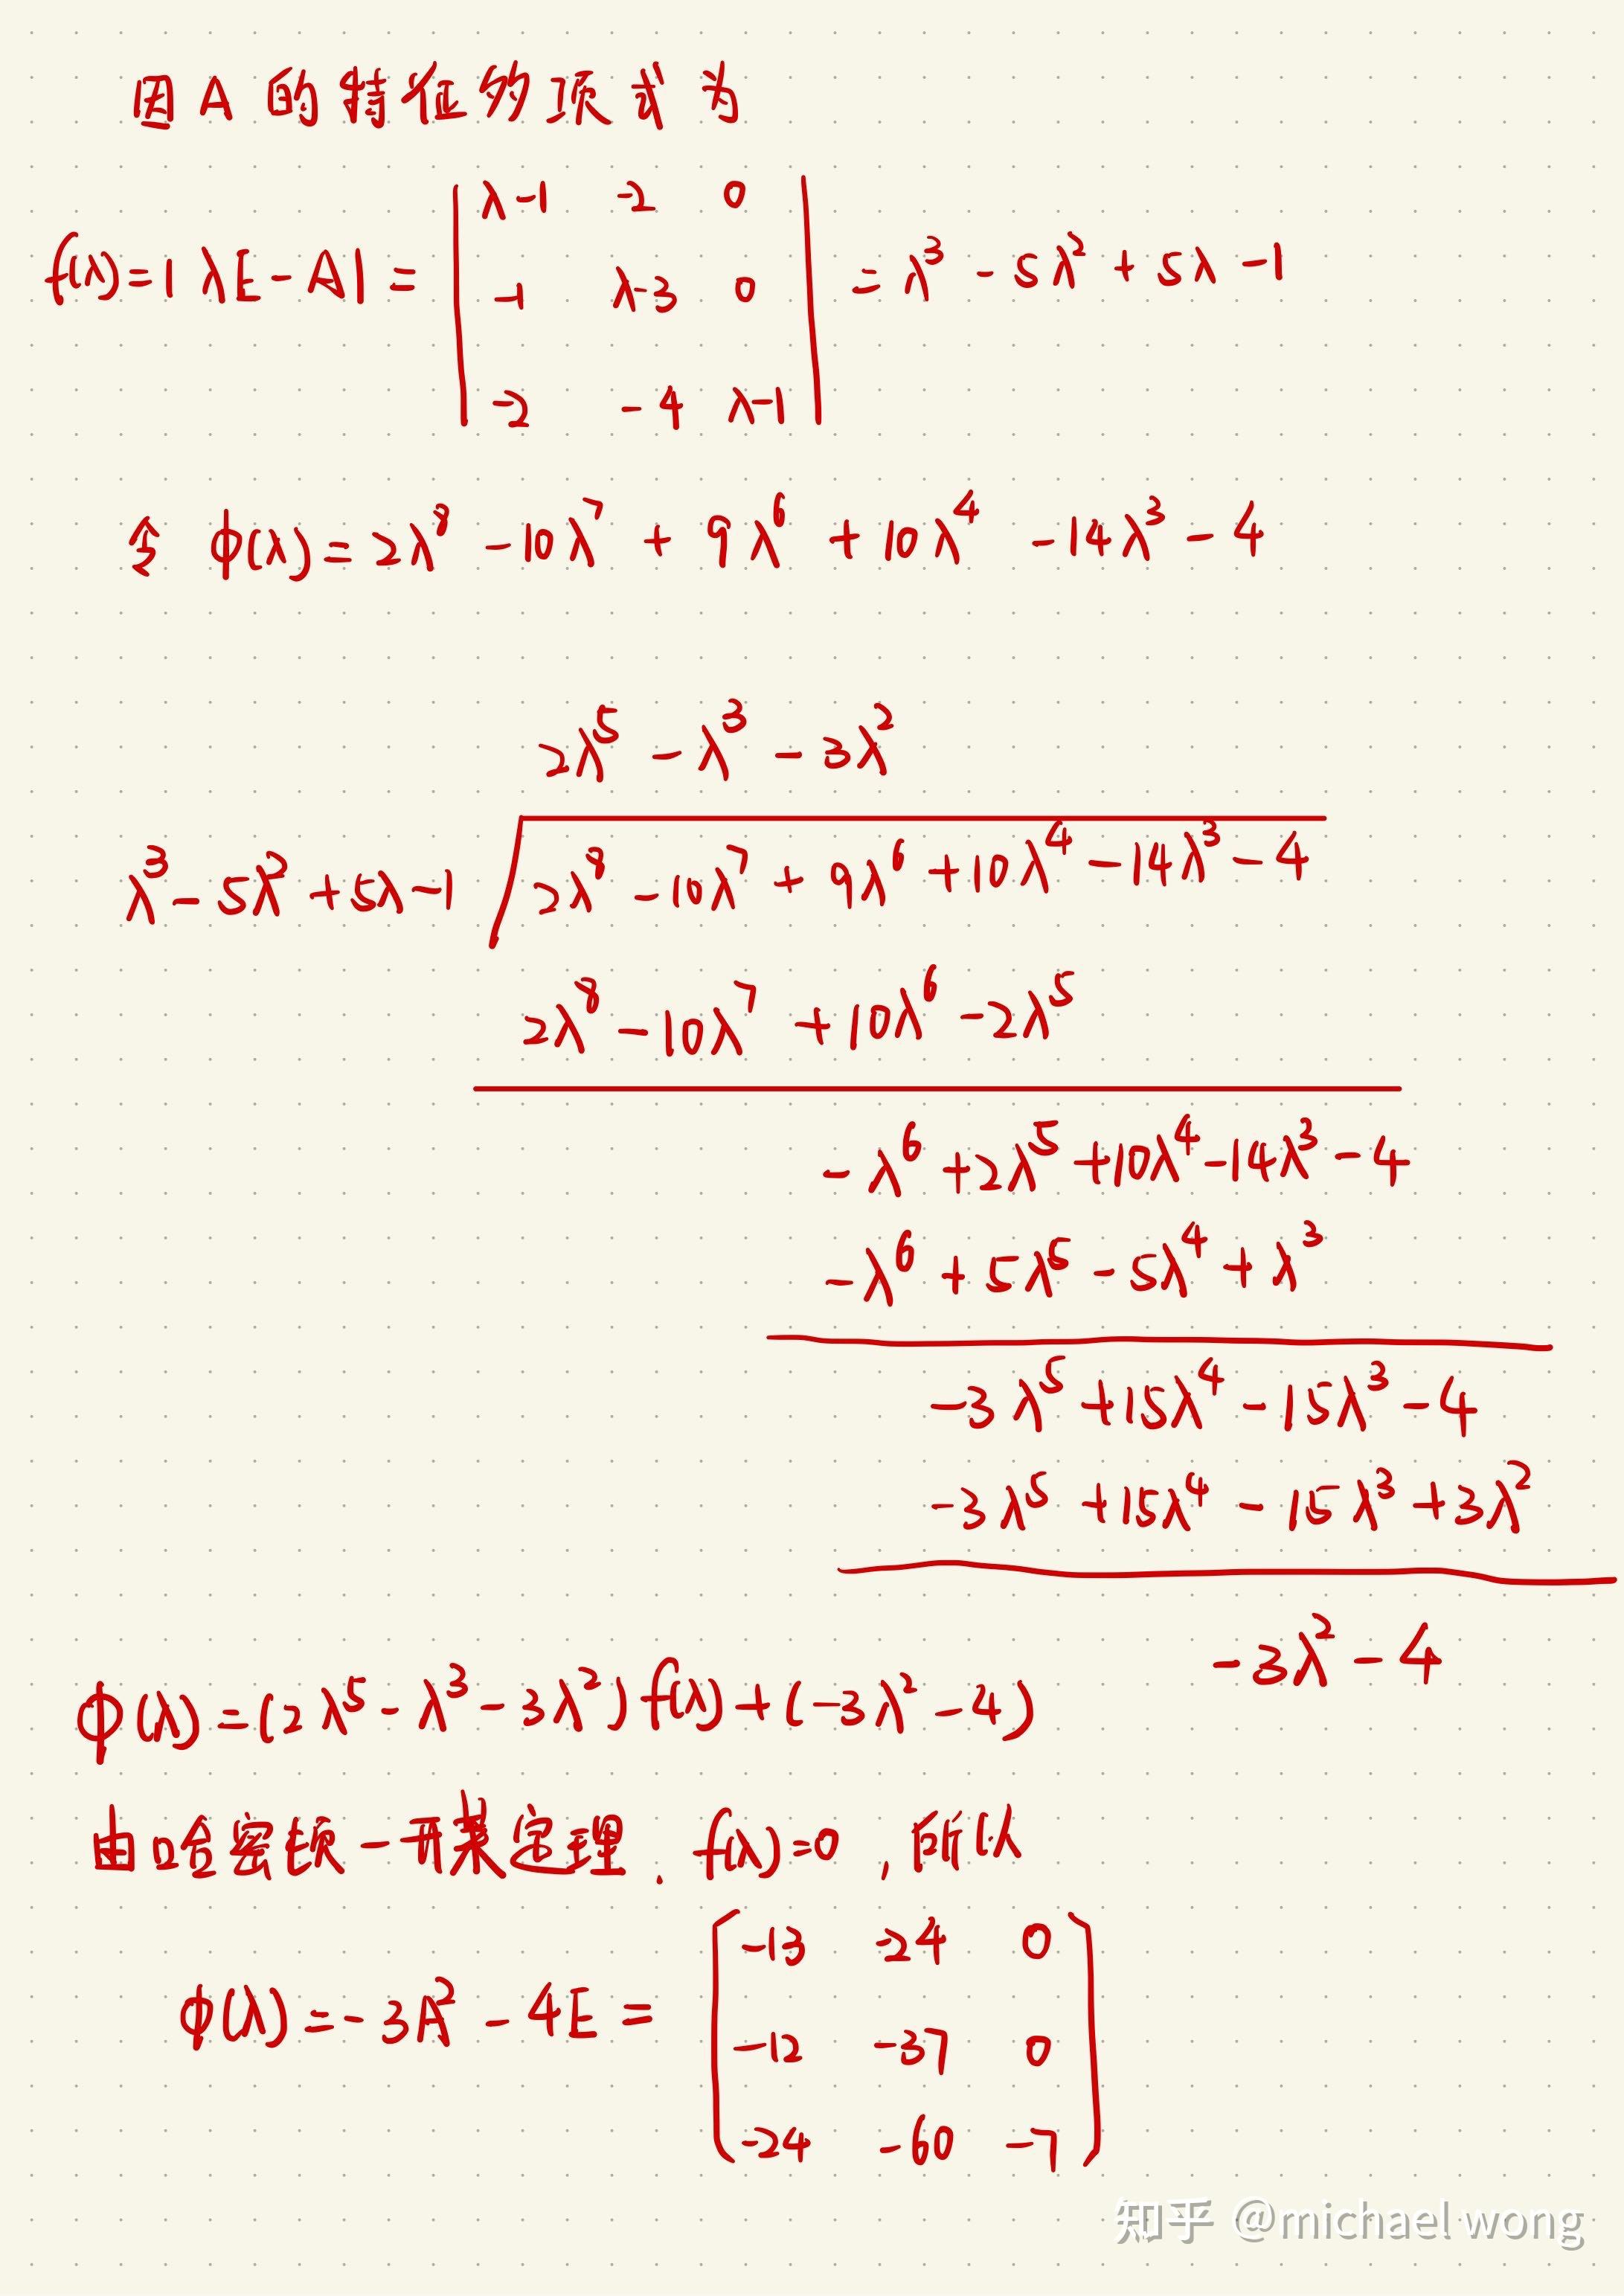 因A的特征多项式为
f(λ)=|λE-A|= | λ-1 -2 0 | = λ³ - 5λ² + 5λ - 1
| -1 λ-3 0 |
| -2 -4 λ-1 |
令 φ(λ) = 2λ⁸ - 10λ⁷ + 9λ⁶ + 10λ⁴ - 14λ³ - 4
2λ⁵ - λ³ - 3λ²
λ³ - 5λ² + 5λ - 1 2λ⁸ - 10λ⁷ + 9λ⁶ + 10λ⁴ - 14λ³ - 4
2λ⁸ - 10λ⁷ + 10λ⁶ - 2λ⁵
-λ⁶ + 2λ⁵ + 10λ⁴ - 14λ³ - 4
-λ⁶ + 5λ⁵ - 5λ⁴ + λ³
-3λ⁵ + 15λ⁴ - 15λ³ - 4
-3λ⁵ + 15λ⁴ - 15λ³ + 3λ²
-3λ² - 4
φ(λ) = (2λ⁵ - λ³ - 3λ²) f(λ) + (-3λ² - 4)
由哈密顿-开莱定理, f(λ)=0, 所以
φ(λ) = -3A² - 4E = [ -13 -24 0 ]
[ -12 -37 0 ]
[ -24 -60 -7 ]
知乎 @michael wong